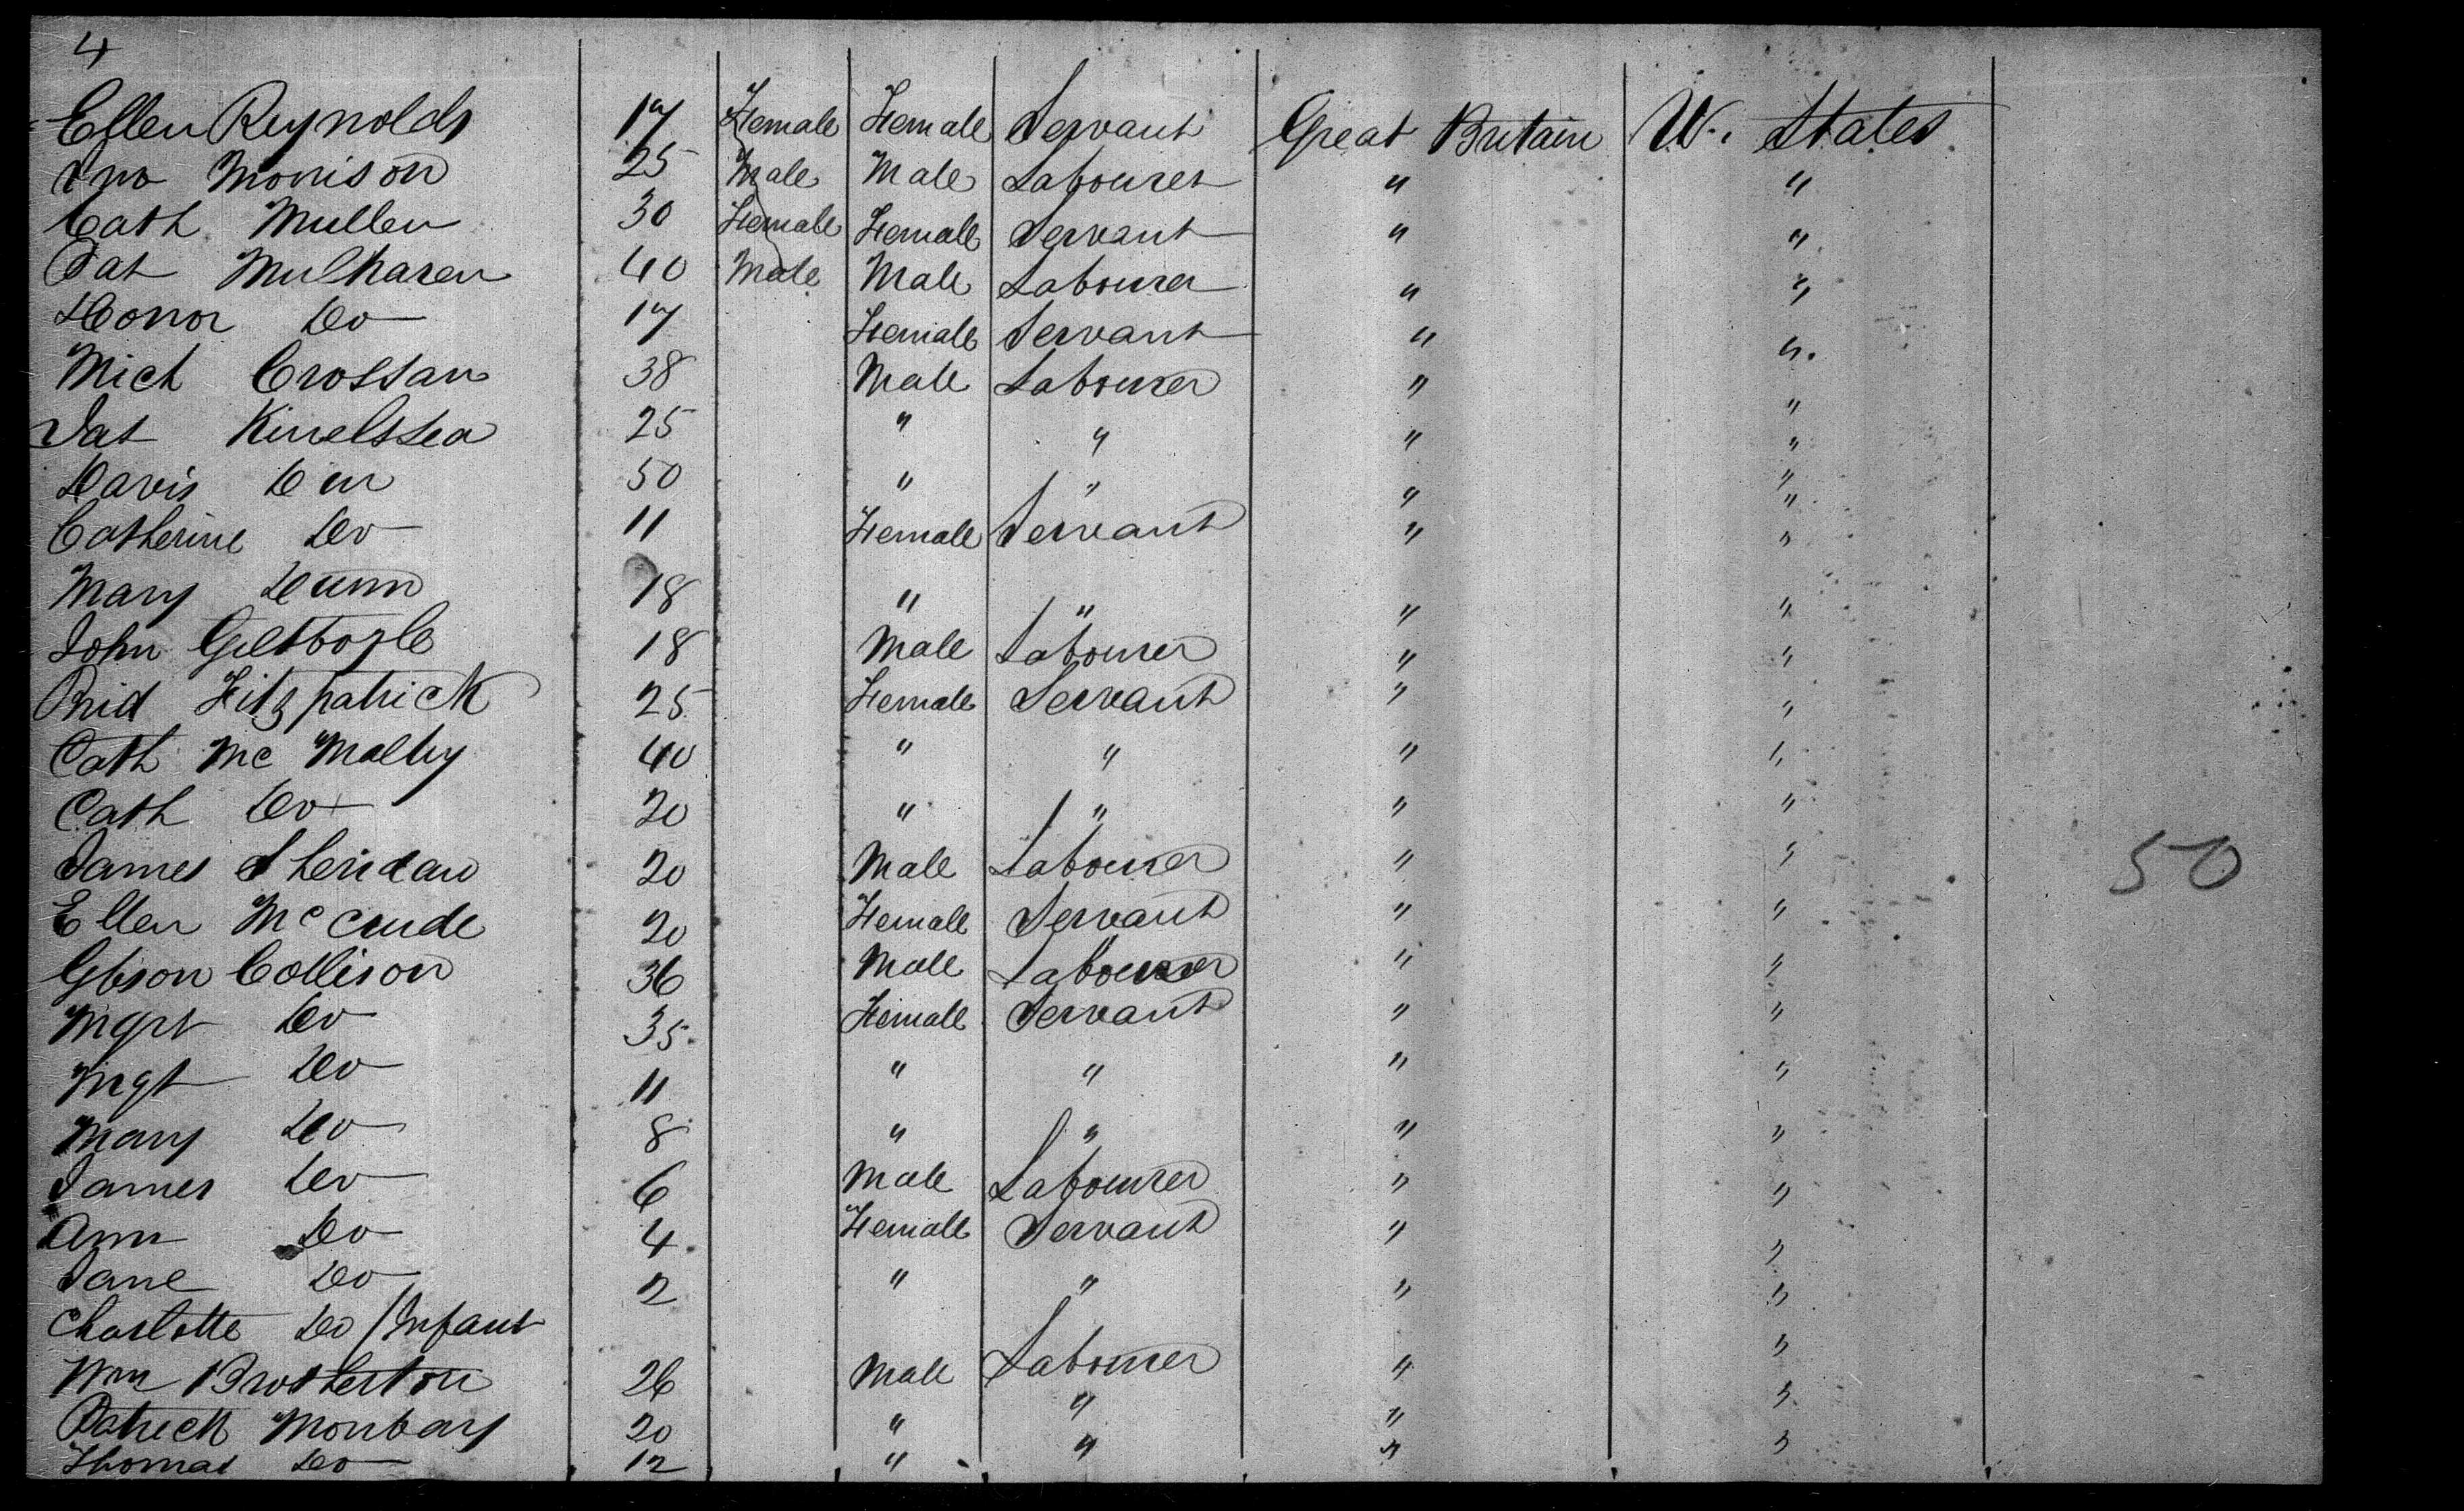 4
Ellen Reynolds 17 Female Female Servant Great Britain U. States
Jno Morrison 25 Male Male Labourer " "
Cath Mullen 30 Female Female Servant " "
Pat Mulharen 40 Male Male Labourer " "
Honor Do 17 Female Servant " "
Mich Crossan 38 Male Labourer " "
Pat 25 " " " "
Davis 50 " " " "
Catherine Do 11 Female Servant " "
Mary Dunn 18 " " " "
John 18 Male Labourer " "
Brid Fitzpatrick 25 Female Servant " "
Cath Mc 40 " " " "
Cath Do 20 " " " "
James Sheridan 20 Male Labourer " "
Ellen 20 Female Servant " "
Gbson Collison 36 Male Labourer " "
Mgrt Do 35 Female Servant " "
Mgt Do 11 " " " "
Mary Do 8 " " " "
James Do 6 Male Labourer " "
Ann Do 4 Female Servant " "
Jane Do 2 " " " "
Charlotte Do / Infant "
Wm Brotherton 26 Male Labourer " "
Patrick 20 " " " "
Thomas Do 12 " " " "
50